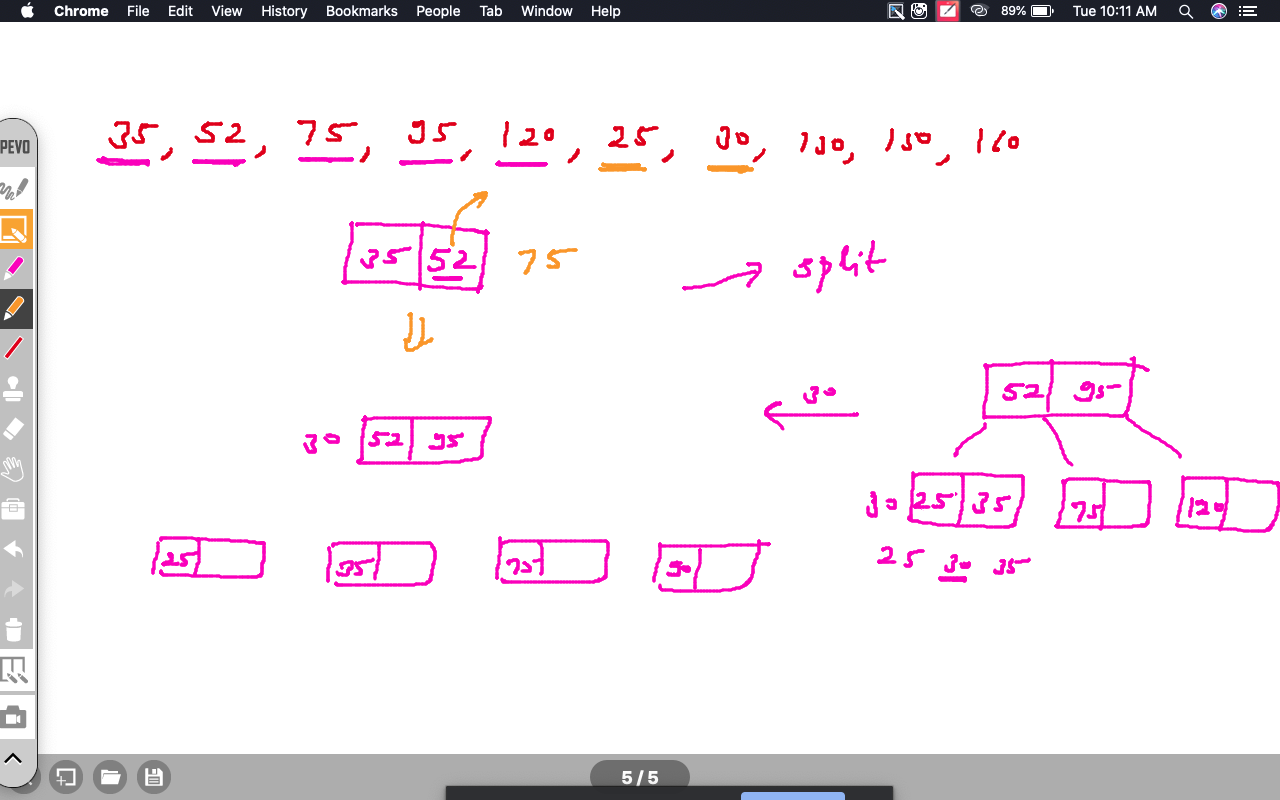 Chrome File Edit View History Bookmarks People Tab Window Help 89% Tue 10:11 AM
PEVO
35, 52, 75, 95, 120, 25, 30, 130, 150, 160
35 52 75
split
52 95
30
30 52 95
30 25 35 75 120
25 35 75 90
25 30 35
5 / 5